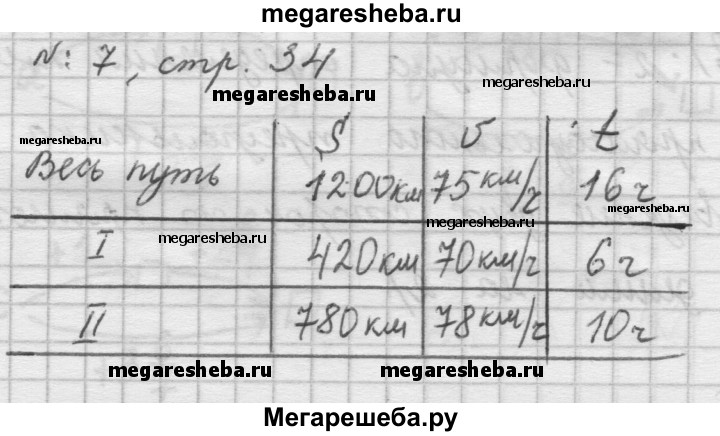 megaresheba.ru
№: 7, стр. 34
megaresheba.ru
megaresheba.ru
megaresheba.ru
S v t
Весь путь 1200км 75км/ч 16ч
megaresheba.ru
megaresheba.ru
megaresheba.ru
I 420км 70км/ч 6ч
II 780км 78км/ч 10ч
megaresheba.ru megaresheba.ru
Мегарешеба.ру